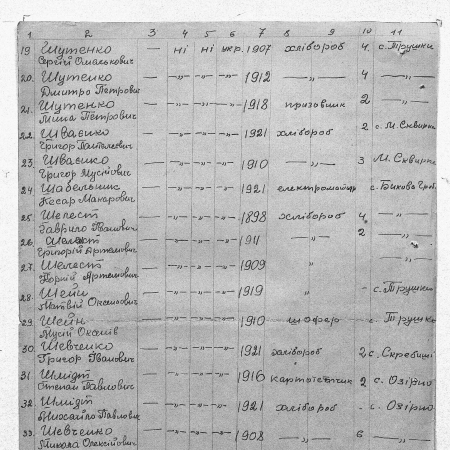 1 2 3 4 5 6 7 8 9 10 11
19 Шутенко — ні ні укр. 1907 хлібороб 4 с. Трушки
Сергій Омелькович
20. Шутенко — „ — „ — „ — 1912 — „ — 4 — „ —
Дмитро Петрович
21. Шутенко — „ — „ — „ — 1918 призовник 2 — „ —
Петрович
22. Шваєнко — „ — „ — „ — 1921 хлібороб 2 с. М. Сквирка
Григор Панталеєвич
23. Шваєнко — „ — „ — „ — 1910 — „ — 3 М. Сквирка
Григор Мусійович
24 Шабельник — „ — „ — „ — 1921 електромонтер с. Бикова Гребля
Кесар Макарович
25 Шелест — „ — „ — „ — 1898 хлібороб 4 — „ —
Гаврило Іванович
26. Шелест — „ — „ — „ — 1911 „ 2 — „ —
Григорій Артемович
27. Шелест — „ — „ — „ — 1909 „ — „ —
Артемович
28. Шейн — „ — „ — „ — 1919 „ - с. Трушки
Матвій
29 Шейн — „ — „ — „ — 1910 шофер с. Трушки
Мусій
30 Шевченко — „ — „ — „ — 1921 хлібороб 2 с. Скребиші
Григор Іванович
31. Шмідт — „ — „ — „ — 1916 2 с. Озірно
Степан Павлович
32. Шмідт — „ — „ — „ — 1921 хлібороб - с. Озірно
Михайло Павлович
33. Шевченко — „ — „ — „ — 1908 — „ — 6 — „ —
Микола Олексійович